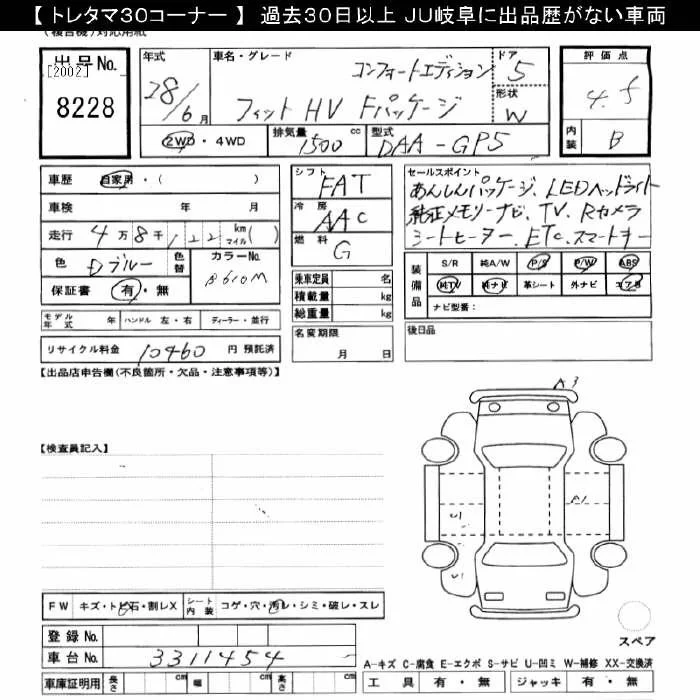 【 トレタマ30コーナー 】 過去30日以上 JU岐阜に出品歴がない車両
(複合機)対応用紙
出品No. [2002] 8228
年式 28/6月
車名・グレード コンフォートエディション
フィット HV Fパッケージ
ドア 5
形状 W
2WD・4WD 排気量 1500 cc 型式 DAA-GP5
評価点 4.5
内装 B
車歴 自家用・( )
車検 年 月
走行 4万8千122 km(マイル)
色 Dブルー 色替 カラーNo. B610M
保証書 有・無
シフト FAT
冷房 AAC
燃料 G
乗車定員 名
積載量 kg
総重量 kg
名変期限 月 日
セールスポイント
あんしんパッケージ、LEDヘッドライト
純正メモリーナビ、TV、Rカメラ
シートヒーター、ETC、スマートキー
装備品 S/R 純A/W P/S P/W ABS
純TV 純ナビ 革シート 外ナビ エアB
ナビ型番:
後日品
モデル年式 年 ハンドル 左・右 ディーラー・並行
リサイクル料金 10460 円 預託済
【出品店申告欄(不良箇所・欠品・注意事項等)】
【検査員記入】
A3
A1
U1
U1
スペア
FW キズ・トビ石・割レX シート内装 コゲ・穴・汚レ・シミ・破レ・スレ
登録 No.
車台 No. 3311454
車庫証明用 長さ cm 幅 cm 高さ cm
A-キズ C-腐食 E-エクボ S-サビ U-凹ミ W-補修 XX-交換済
工具 有・無 ジャッキ 有・無